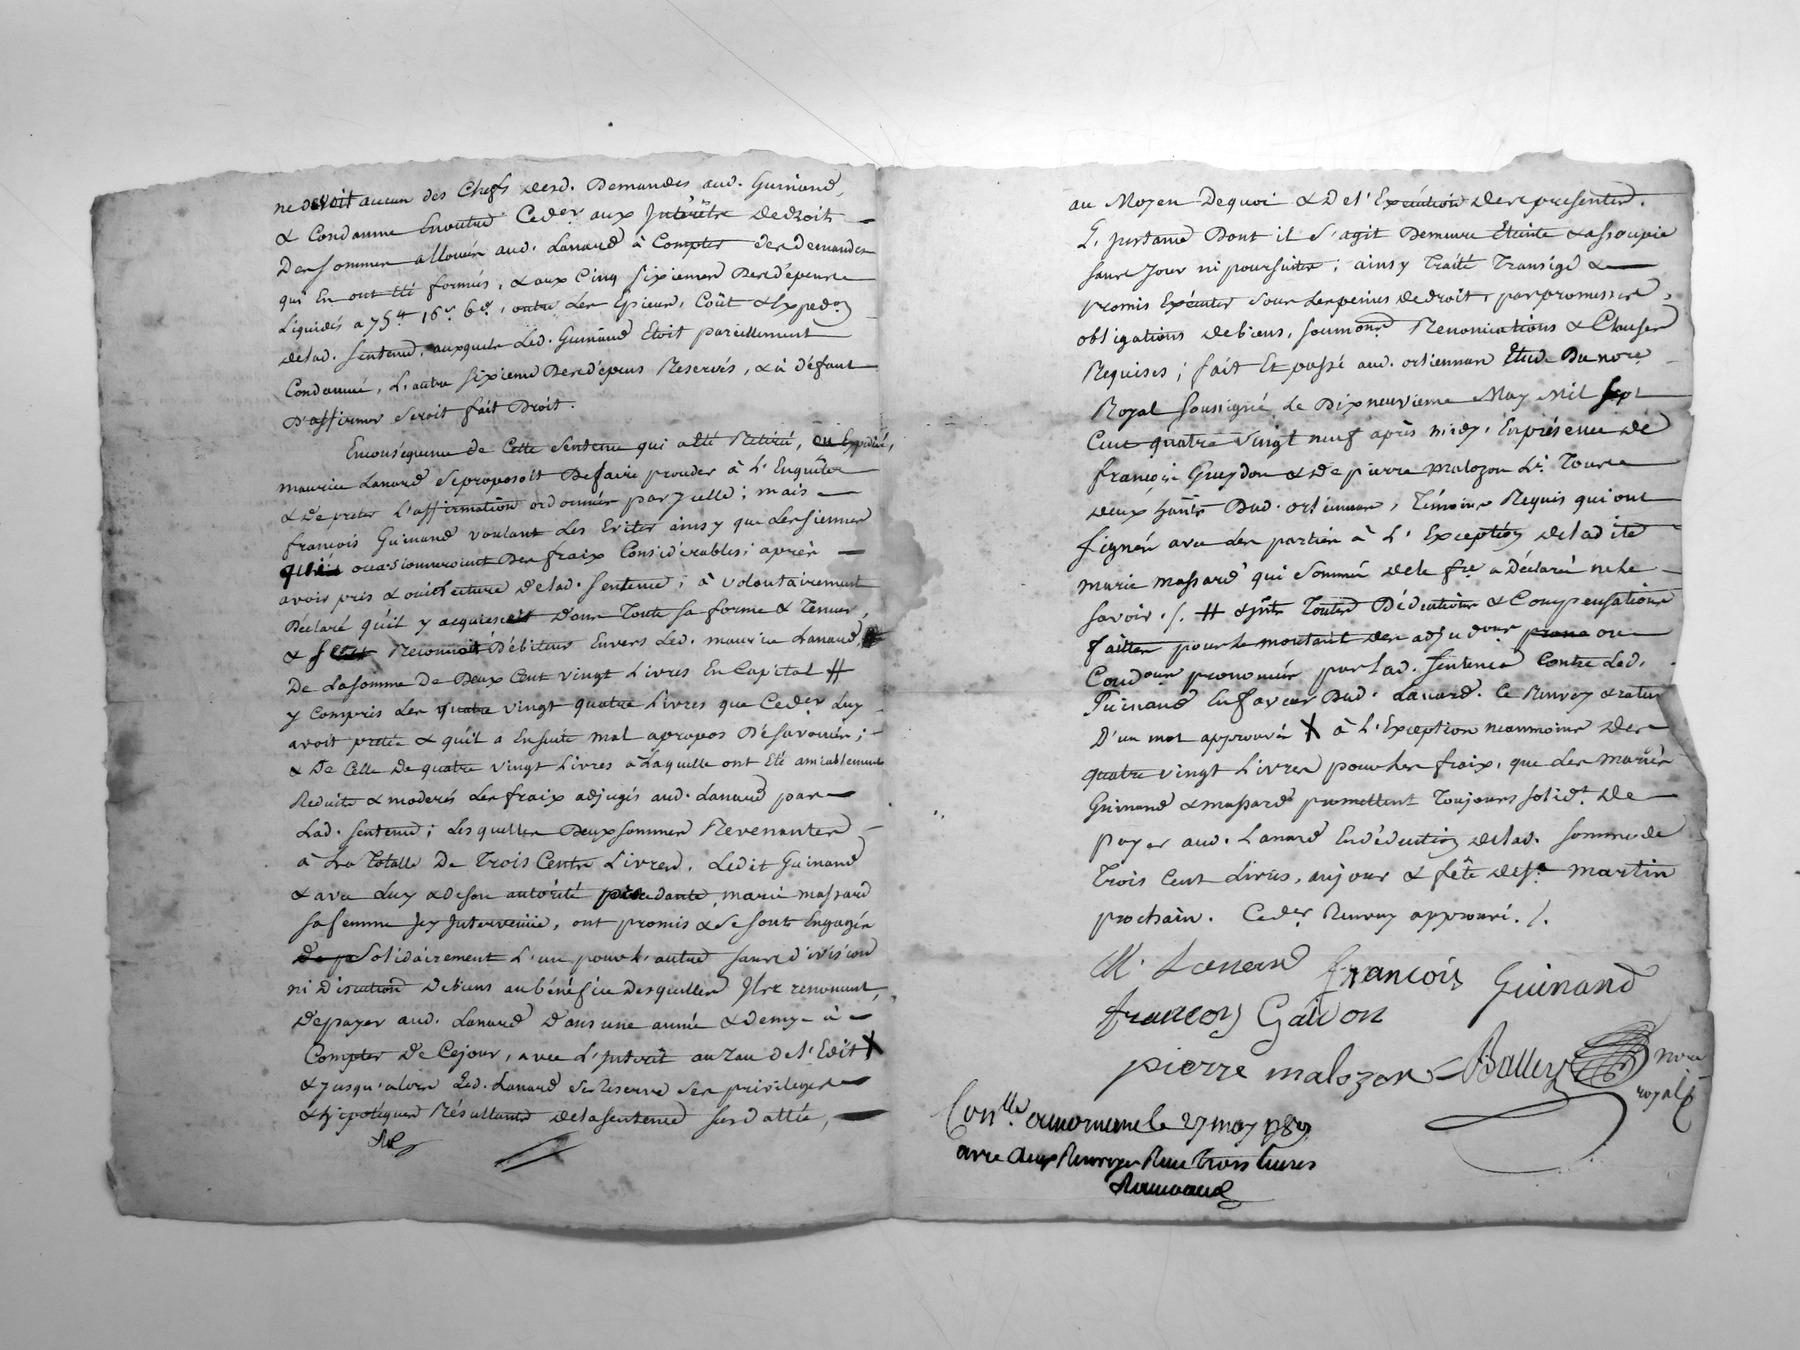 ne devoit aucun des Chefs desd. Demandes aud. Guinand,
& Condamne Enoutre Ceder aux Jntérêts dedroits
Des sommes allouées aud. Lanard à Compter des demandes
qui En ont été formées, & aux Cinq sixiemes Des dépens
Liquidés a 75tt 16s 6d, outre Les Epices, Coût & Expedon
delad. sentence, auxquels Led. Guinand Etoit pareillement
Condamné, L'autre sixieme Des dépens Reservés, & à défaut
D'affirmer seroit fait Droit.
Enconséquence de Cette sentence qui a été Retirée, ou Expediée,
maurice Lanard seproposoit De faire proceder à L'Enquête
& de preter L'affirmation ordonnée par jcelle ; mais
françois Guinand voulant Les Eviter ainsy que des siennes
qui occasionneroient Des fraix Considérables ; après
avoir pris & oui lecture delad. sentence ; à volontairement
Déclaré qu'il y acquiesceit Dans Toute sa forme & Teneur,
& Reconnoit Débiteur Envers Led. maurice Lanard
De La somme De Deux Cent vingt Livres En Capital #
y Compris Les quatre vingt quatre Livres que Ceder Luy
avoit preté & qu'il a Ensuite mal apropos Désavouées ;
& De Celle De quatre vingt Livres à Laquelle ont Eté amiablement
Reduits & moderés Les fraix adjugés aud. Lanard par
Lad. sentence ; Lesquelles Deux sommes Revenantes
à La Totalle De Trois Cents Livres. Ledit Guinand
& avec Luy & de son autorité procedante, marie massard
sa femme Jcy Jntervenue, ont promis & se sont Engagés
Solidairement L'un pour L'autre sans division
ni Discution debiens au bénéfice Desquelles Jls renoncent,
de payer aud. Lanard Dans une année & demy à
Compter de Cejour, avec L'jnterêt au Tau de L'Edit X
& jusqu'alors Led. Lanard se Reserve ses privileges
& hipotéques Résultants de la sentence susdattée,
au Moyen Dequoi & De L'Exécution des presentes.
L'jnstance Dont il s'agit Demeure Eteinte & assoupie
sans Jour ni poursuites ; ainsy Traité Transigé &
promis Exécuter sous Les peines de droit, par promesses,
obligations de biens, soumons Renonciations & Clauses
Requises ; fait Et passé aud. orliennas Etude Du nore
Royal soussigné Le Dix neuvieme May Mil sept
Cent quatre vingt neuf après midy, En présence de
françois Gueydon & De pierre malozon Lr. Tous
deux hants Dud. orliennas, Témoins Requis qui ont
signés avec Les parties à L'Exception de ladite
marie massard qui sommée de le fre a Déclaré ne Le
savoir. /. # & jnts Toutes Déductions & Compensations
faittes pour Le montant des adjudons ou
Condons prononcées par Lad. sentence Contre Led.
Guinand En faveur Dud. Lanard. Ce Renvoy & rature
D'un mot approuvés X à L'Exception neanmoins des
quatre vingt Livres pour Les fraix, que Les mariés
Guinand & massard promettent Toujours solidt. de
payer aud. Lanard En déduction de lad. somme de
Trois Cent Livres, au jour & fête de st. martin
prochain. Ceder Renvoy approuvé. /.
M. Lanard françois Guinand
françois Gaidon
pierre malozon Balley nore
royal
Conllé a mornant le 27 may 1789
avec deux Renvoys Reçu trois livres